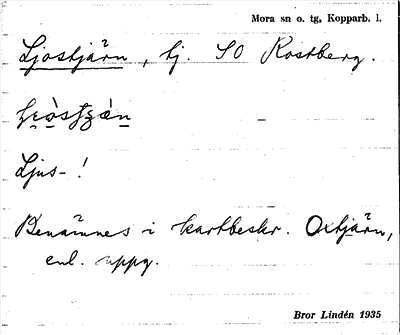 Mora sn o. tg, Kopparb. l.
Ljostjärn, tj. SO Rostberg.
Ljus- !
Benämnes i kartbeskr. Oxtjärn,
enl. uppg.
Bror Lindén 1935